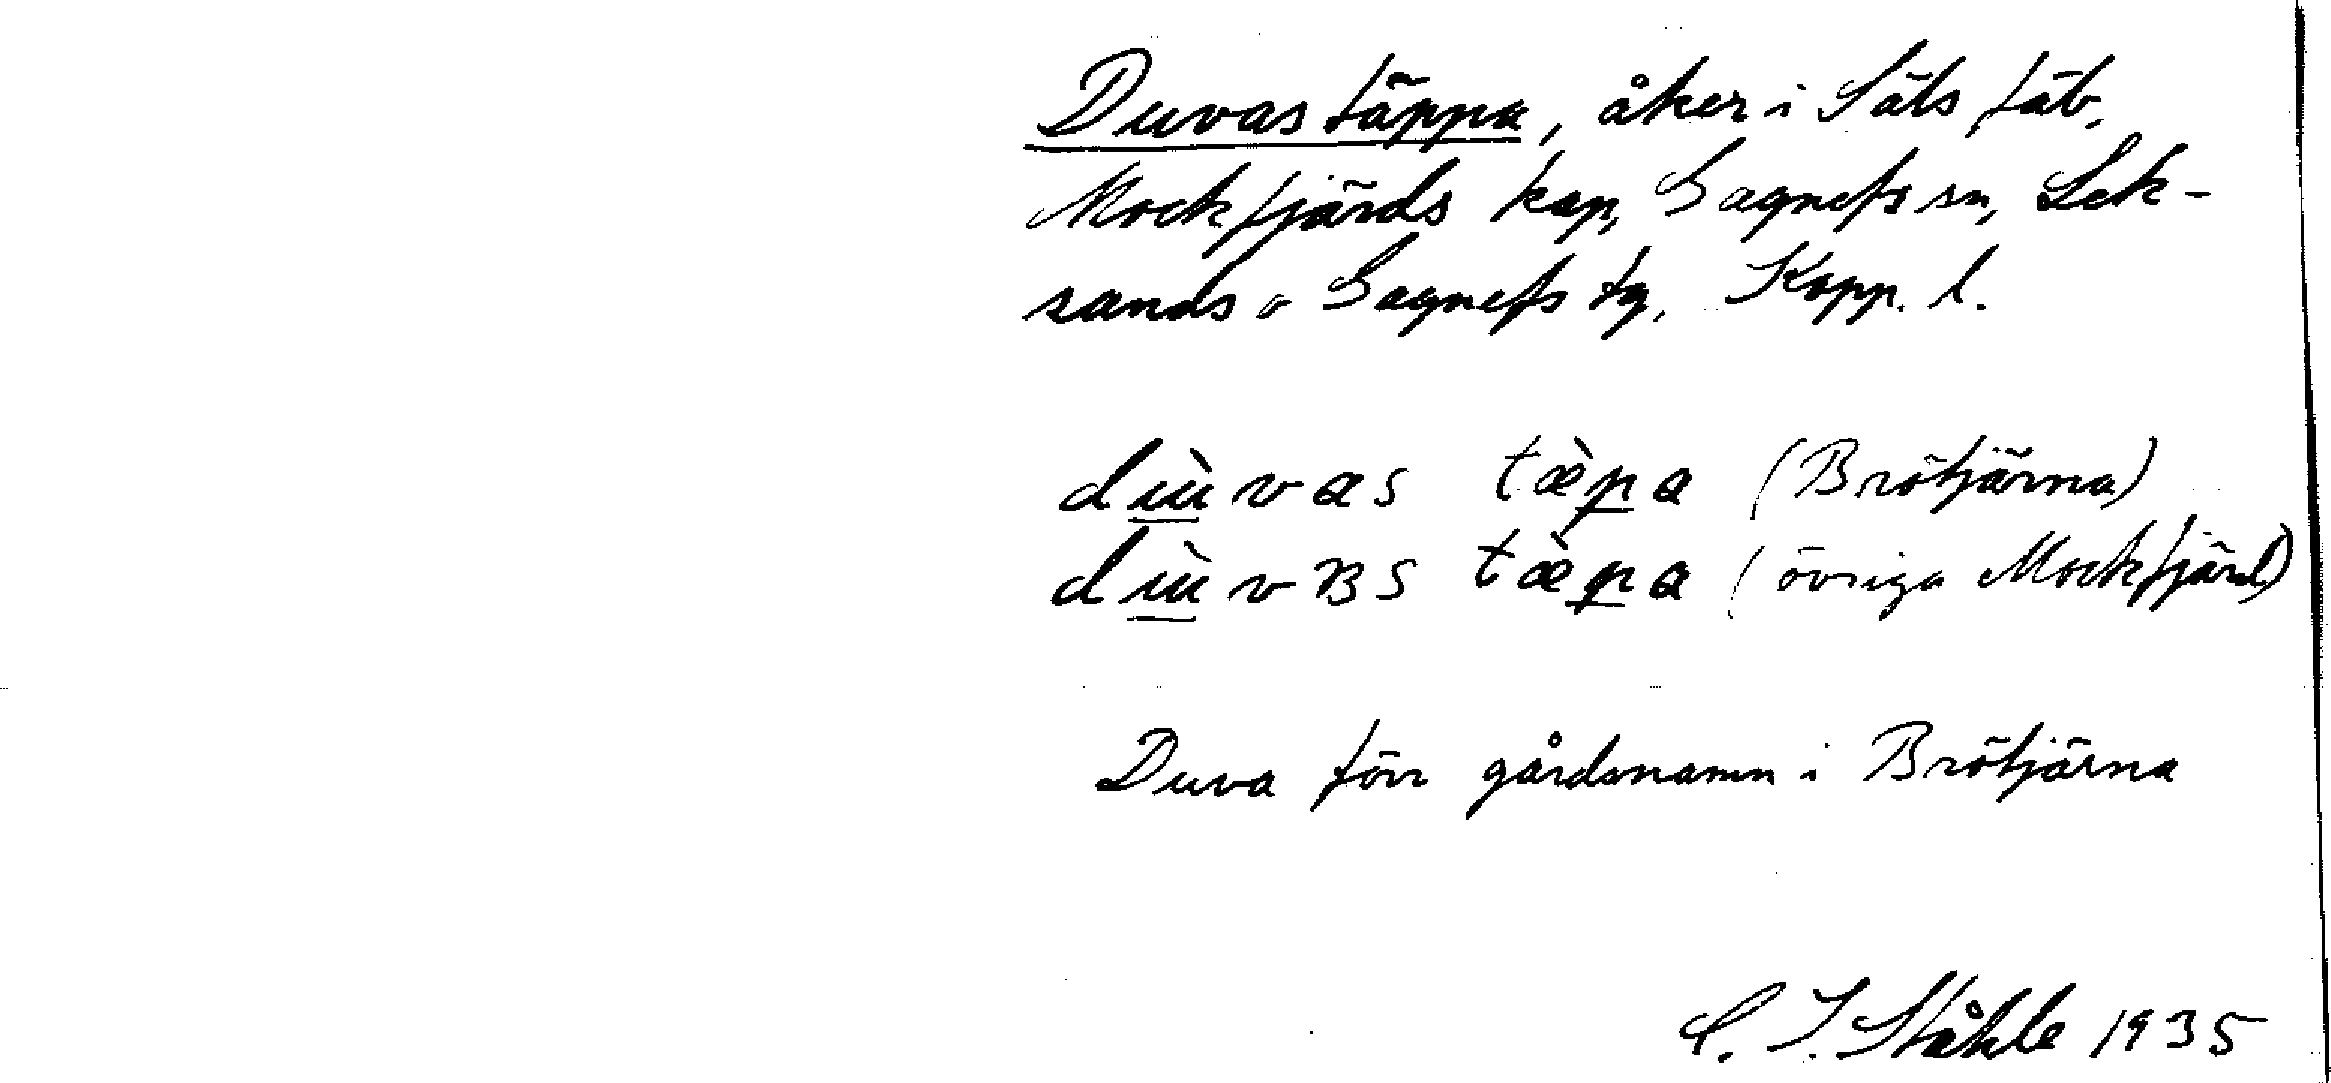 Duvas täppa, åker i Säls fäb.
Mockfjärds kap, Gagnefs sn, Lek-
sands o Gagnefs tg, Kopp. l.
duvas tæ̀pa (Brötjärna)
duvɐs tæ̀pa (övriga Mockfjärd)
Duva förr gårdsnamn i Brötjärna
C. I. Ståhle 1935